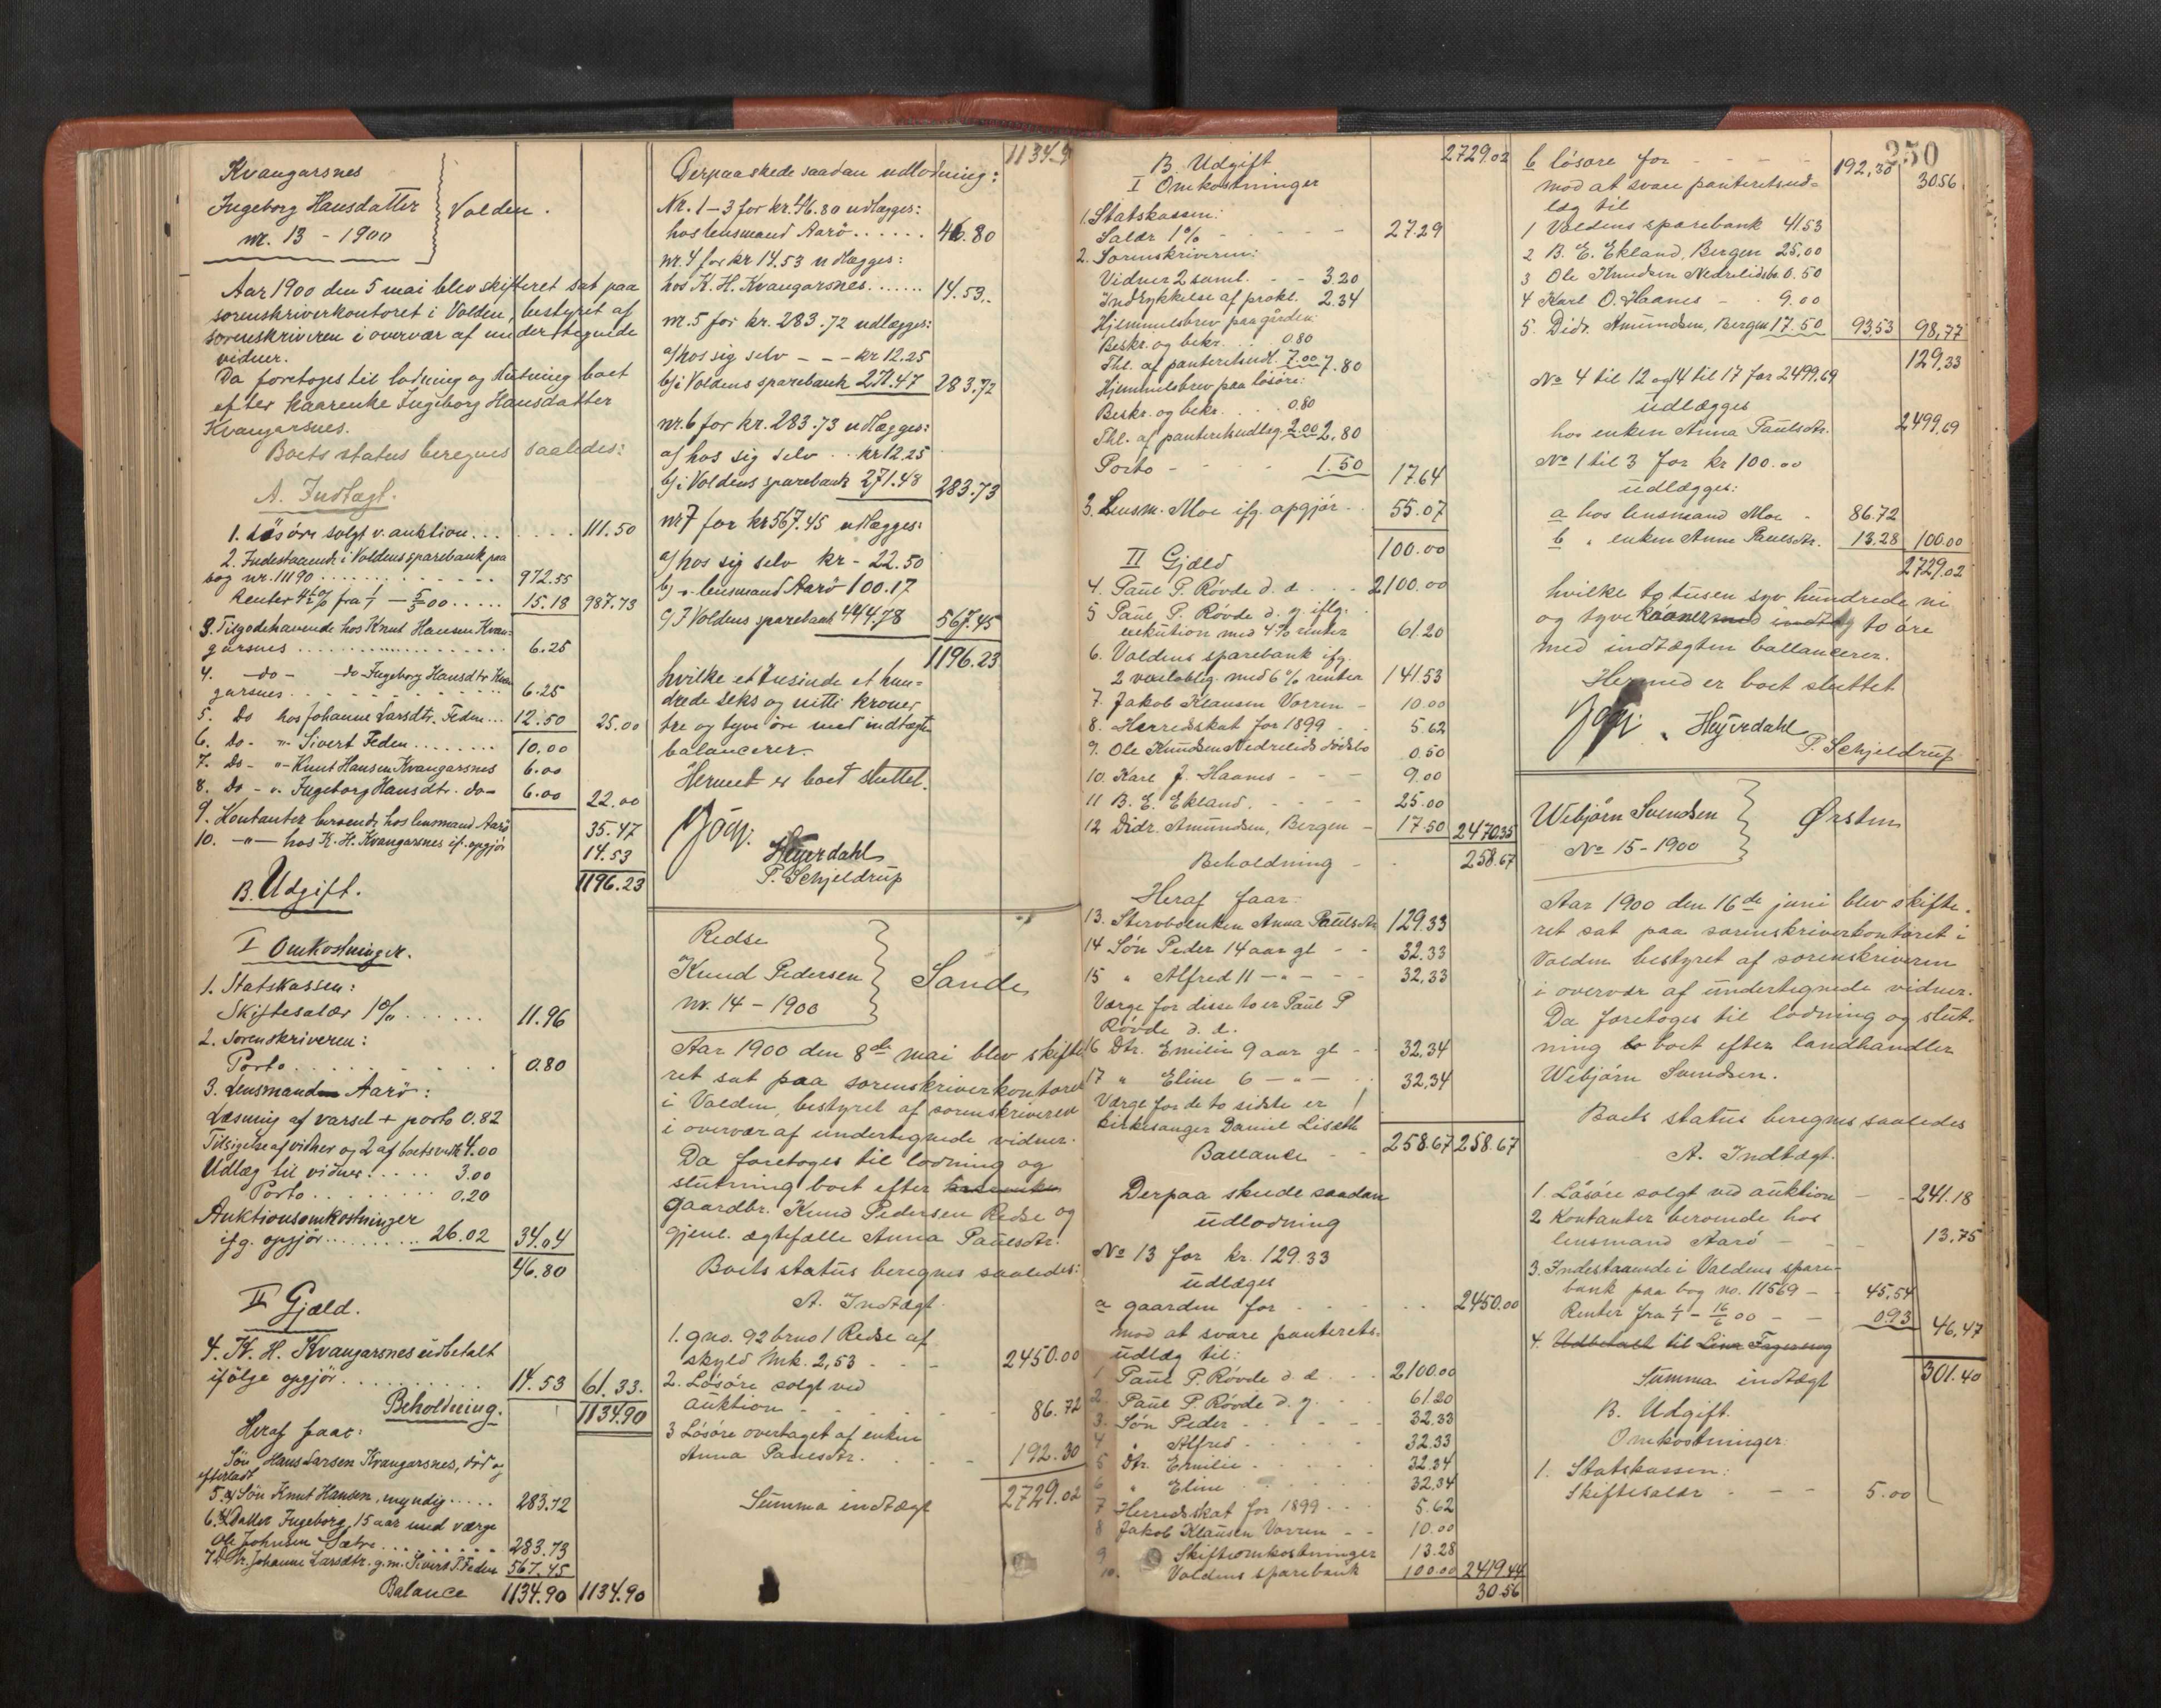 Kvangarsnes
Ingeborg Hansdatter
nr. 13 - 1900
Volden.
Aar 1900 den 5 mai blev skifteret sat paa
sorenskriverkontoret i Volden, bestyret af
sorenskriveren i overvær af undertegnede
vidner.
Da foretoges til lodning og slutning boet
efter kaarenke Ingeborg Hansdatter
Kvangarsnes.
Boets status beregnes saaledes:
A. Indtægt.
1. Løsøre solgt v. auktion . . . 111.50
2. Indestaaende i Voldens sparebank paa
bog nr. 11190 . . . 972.55
Renter 4½% fra 1/1 - 5/5 00 . . . 15.18 987.73
3. Tilgodehavende hos Knut Hansen Kvan-
garsnes . . . 6.25
4. -do- do Ingeborg Hansdtr Kvan
garsnes . . . 6.25
5. Do hos Johanne Larsdtr. Feden . . . 12.50 25.00
6. Do - " - Sivert Feden . . . 10.00
7. Do - " - Knut Hansen Kvangarsnes 6.00
8. Do - " - Ingeborg Hansdtr. -do- 6.00 22.00
9. Kontanter beroende hos lensmand Aarø 35.47
10. -"- hos K. H. Kvangarsnes if. opgjør 14.53
1196.23
B. Udgift.
I Omkostninger.
1. Statskassen:
Skiftesalær 1% . . . 11.96
2. Sorenskriveren:
Porto . . . 0.80
3. Lensmand Aarø:
Læsning af varsel + porto 0.82
Tilsigelse af vidner og 2 af boets vidn 4.00
Udlæg til vidner . . . 3.00
Porto . . . 0.20
Auktionsomkostninger
ifg. opgjør . . . 26.02 34.04
46.80
II Gjæld.
4. K. H. Kvangarsnes udbetalt
ifølge opgjør . . . 14.53 61.33.
Beholdning. 1134.90
Heraf faar:
Søn Hans Larsen Kvangarsnes, død og
efterladt
5. a/ Søn Knut Hansen, myndig . . . 283.72
6. b/ Datter Ingeborg, 15 aar med værge
Ole Johnsen Sætre . . . 283.73
7 Dtr. Johanne Larsdtr. g.m. Sivert P. Feden 567.45
Balance 1134.90 1134.90
1134.9
Derpaa skede saadan udlodning:
Nr. 1-3 for kr. 46.80 udlægges:
hos lensmand Aarø . . . 46.80
nr. 4 for kr 14.53 udlægges:
hos K. H. Kvangarsnes . . . 14.53..
nr. 5 for kr. 283.72 udlægges:
a/ hos sig selv - - - kr 12.25
b/ i Voldens sparebank 271.47 283.72
nr. 6 for kr. 283.73 udlægges:
a/ hos sig selv . . kr 12.25
b/ i Voldens sparebank 271.48 283.73
nr 7 for kr 567.45 udlægges:
a/ hos sig selv kr - 22.50
b/ - " - lensmand Aarø 100.17
c/ I Voldens sparebank 444.78 567.45
1196.23
hvilke et tusinde et hun-
drede seks og nitti kroner
tre og tyve øre med indtægten
balancerer.
Hermed er boet sluttet.
Heyerdahl
P. Schjeldrup
Redse
Knud Pedersen
nr. 14 - 1900
Sande
Aar 1900 den 8de mai blev skifte
ret sat paa sorenskriverkontoret
i Volden, bestyret af sorenskriveren
i overvær af undertegnede vidner.
Da foretoges til lodning og
slutning boet efter
gaardbr. Knud Pedersen Redse og
gjenl. ægtefælle Anna Paulsdtr.
Boets status beregnes saaledes:
A. Indtægt.
1. gno. 92 brno 1 Redse af
skyld Mrk. 2,53 - - - 2450.00
2. Løsøre solgt ved
auktion . . . 86.72
3 Løsøre overtaget af enken
Anna Paulsdtr. . . . 192.30
Summa indtægt 2729.02
B. Udgift 2729.02
I Omkostninger
1. Statskassen:
Salær 1% - - - 27.29
2. Sorenskriveren:
Vidner 2 saml. - - 3.20
Indrykkelse af prokl. 2.34
Hjemmelsbrev paa gården:
Beskr. og bekr. . . . 0.80
Thl. af panteretsudl. 7.00 7.80
Hjemmelsbrev paa løsøre:
Beskr. og bekr. . . . 0.80
Thl. af panteretsudlæg. 2.00 2.80
Porto - - - 1.50 17.64
3. Lensm. Moe ifg. opgjør . . 55.07
100.00
II Gjæld
4. Paul P. Røvde d. æ . . . 2100.00
5 Paul P. Røvde d. y. iflg.
exekution med 4% renter 61.20
6. Voldens sparebank ifg.
2 vexloblig. med 6% renter 141.53
7. Jakob Klausen Vorren - 10.00
8. Herredskat for 1899 . . 5.62
9. Ole Knudsen Nedrelids dødsbo 0.50
10. Karl J. Haanes - - - 9.00
11 B. E. Ekland. - - - 25.00
12 Didr. Amundsen, Bergen - 17.50 2470.35
Beholdning - - 258.67
Heraf faar:
13. Stervboenken Anna Paulsdtr 129.33
14 Søn Peder 14 aar gl - - 32.33
15 " Alfred 11 - " - - - 32.33
Værge for disse to er Paul P
Røvde d. æ.
16 Dtr. Emilie 9 aar gl - - 32.34
17 " Eline 6 - " - - - 32.34
Værge for de to sidste er
kirkesanger Daniel Liseth
Ballance - - 258.67 258.67
Derpaa skede saadan
udlodning
No 13 for kr. 129.33
udlæges
a gaarden for - - - . . 2450.00
mod at svare panterets-
udlæg til:
1 Paul P. Røvde d. æ. . . . 2100.00
2. Paul P. Røvde d. y. . . 61.20
3. Søn Peder - - - 32.33
4 " Alfred . . . 32.33
5 Dtr. Emilie . . . 32.34
6 " Eline . . . 32.34
7 Herredsskat for 1899 . . . 5.62
8 Jakob Klausen Vorren - - 10.00
9 Skifteomkostninger 13.28
10. Voldens sparebank 100.00 2419.44
30.56
250
b løsøre for - - - - 192,30 30.56
mod at svare panteretsud-
læg til
1 Voldens sparebank 41.53
2 B. E. Ekland, Bergen 25,00
3 Ole Knudsen Nedrelidsbo 0.50
4 Karl O. Haanes - . 9.00
5. Didr. Amundsen, Bergen 17.50 93,53 98,77
129,33
No 4 til 12 og 14 til 17 for 2499,69
udlægges
hos enken Anna Paulsdtr. 2499,69
No 1 til 3 for kr 100.00
udlægges:
a hos lensmand Moe - 86.72
b " enken Anne Paulsdtr. 13.28 100.00
2729.02
hvilke to tusen syv hundrede ni
og tyve kroner med indtæg to øre
med indtægten ballancerer.
Hermed er boet sluttet
Heyerdahl
P. Schjeldrup
Webjørn Svendsen
No 15 - 1900
Ørsten
Aar 1900 den 16de juni blev skifte-
ret sat paa sorenskriverkontoret i
Volden bestyret af sorenskriveren
i overvær af undertegnede vidner.
Da foretoges til lodning og slut-
ning boet efter landhandler
Webjørn Svendsen.
Boets status beregnes saaledes
A. Indtægt.
1. Løsøre solgt ved auktion - - 241.18
2 Kontanter beroende hos
lensmand Aarø - - - 13.75
3. Indestaaende i Voldens spare-
bank paa bog no. 11569 - - 45,54
Renter fra 1/1 - 16/6 00 - - 0.93 46,47
4. Udbetalt til Lina
Summa indtægt 301.40
B. Udgift.
Omkostninger:
1. Statskassen:
Skiftesalær - - - 5.00